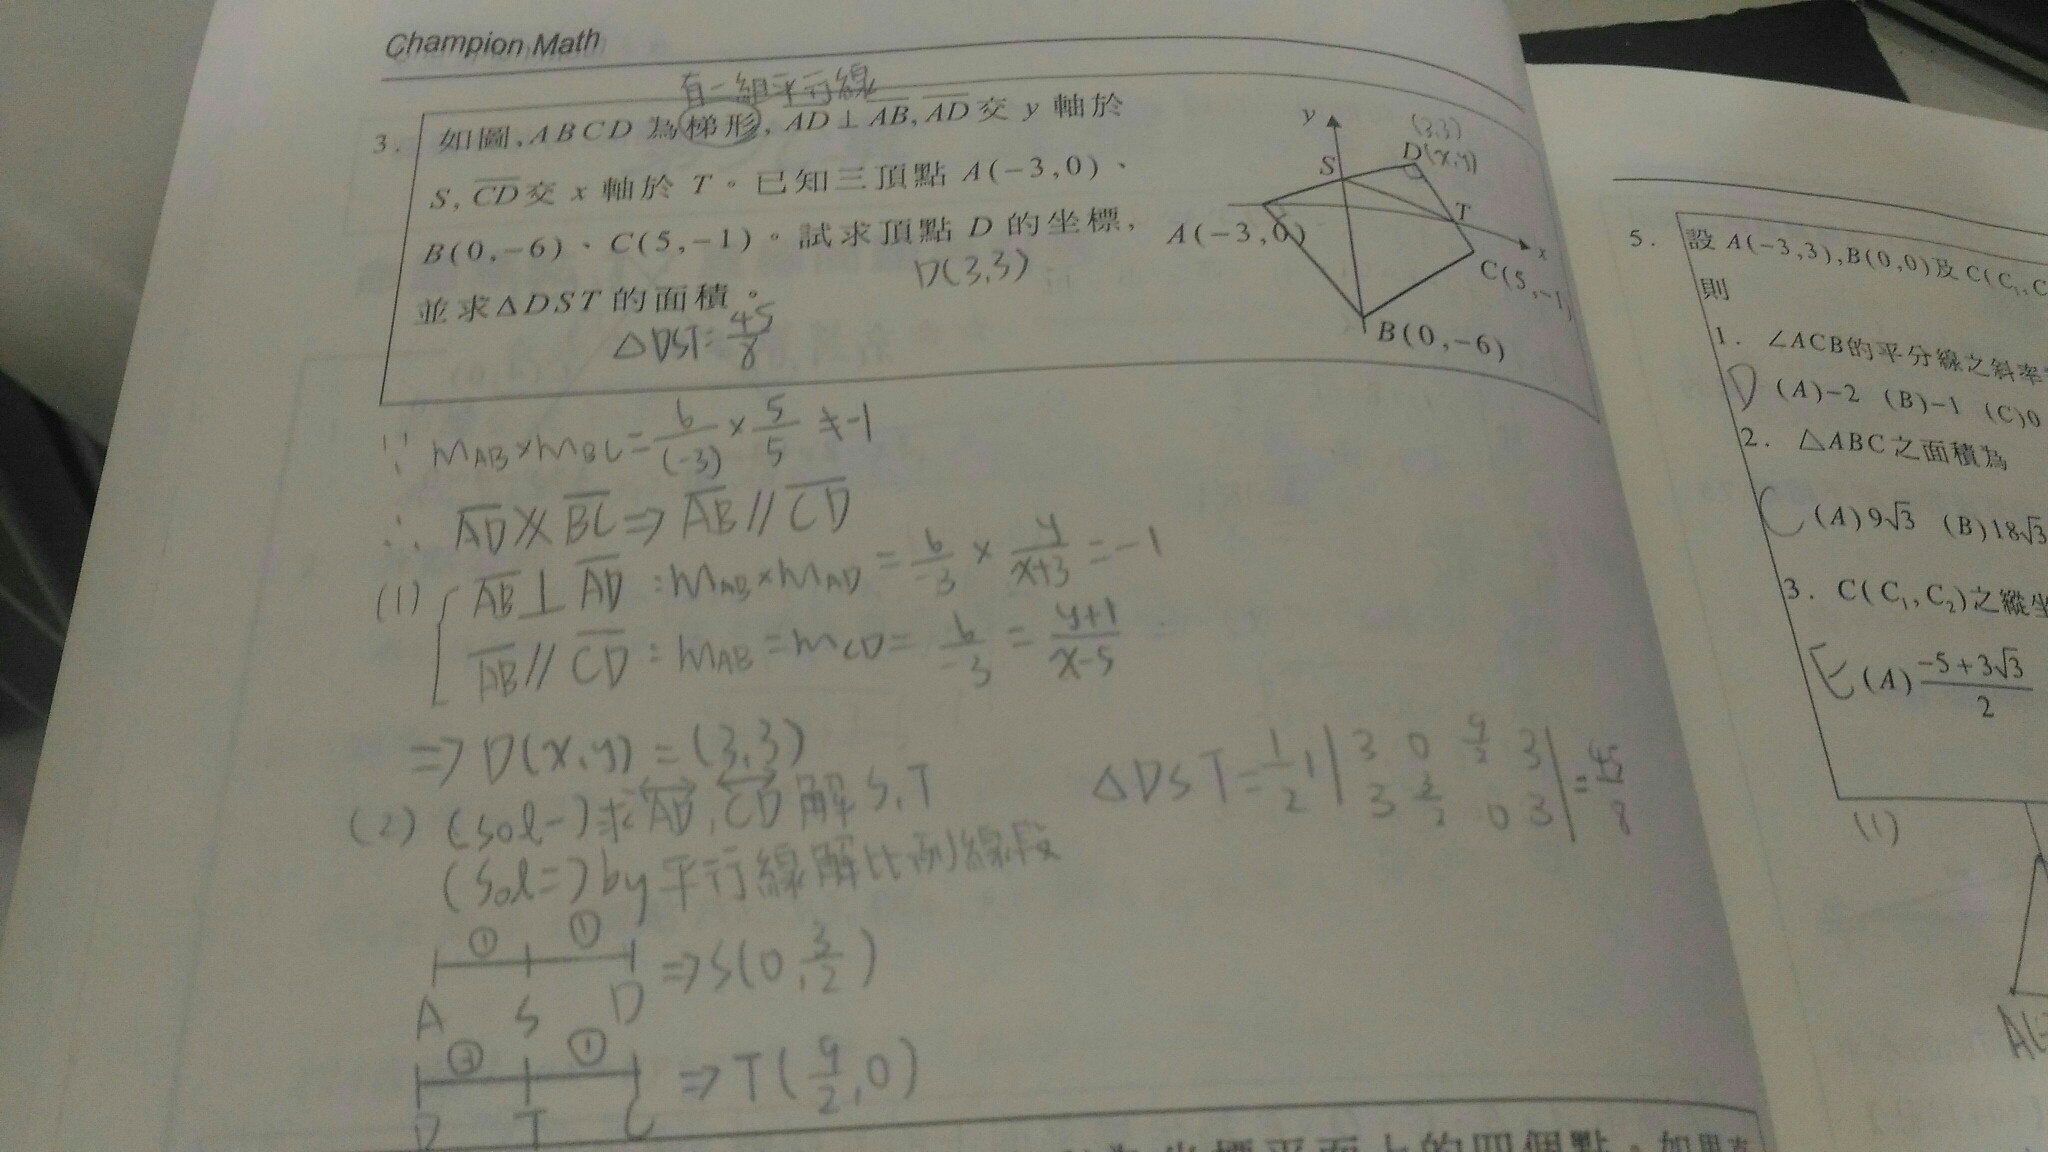 Champion Math
有一組平行線
3. 如圖,ABCD 為梯形, AD⊥AB, AD 交 y 軸於
S, CD 交 x 軸於 T。已知三頂點 A(-3,0)、
B(0,-6)、C(5,-1)。試求頂點 D 的坐標,
D(3,3)
並求ΔDST 的面積。
ΔDST: 45/8
y
(3,3)
S
D(x,y)
T
A(-3,0)
x
C(5,-1)
B(0,-6)
∵ mAB×mBC = 6/(-3) × 5/5 ≠ -1
∴ AD∦BC ⇒ AB // CD
(1) { AB⊥AD : mAB×mAD = 6/-3 × y/(x+3) = -1
AB // CD : mAB = mCD = 6/-3 = (y+1)/(x-5)
⇒ D(x,y) = (3,3)
(2) (sol一)求AD, CD 解 S,T
(sol二) by 平行線解比例線段
① ①
A S D ⇒ S(0, 3/2)
③ ①
D T C ⇒ T(9/2, 0)
ΔDST = 1/2 | 3 0 9/2 3 |
3 3/2 0 3 | = 45/8
5. 設 A(-3,3),B(0,0)及 C(C₁,C
則
1. ∠ACB的平分線之斜率
D (A)-2 (B)-1 (C)0
2. △ABC之面積為
C (A)9√3 (B)18√3
3. C(C₁,C₂)之縱坐
E (A) (-5+3√3)/2
(1)